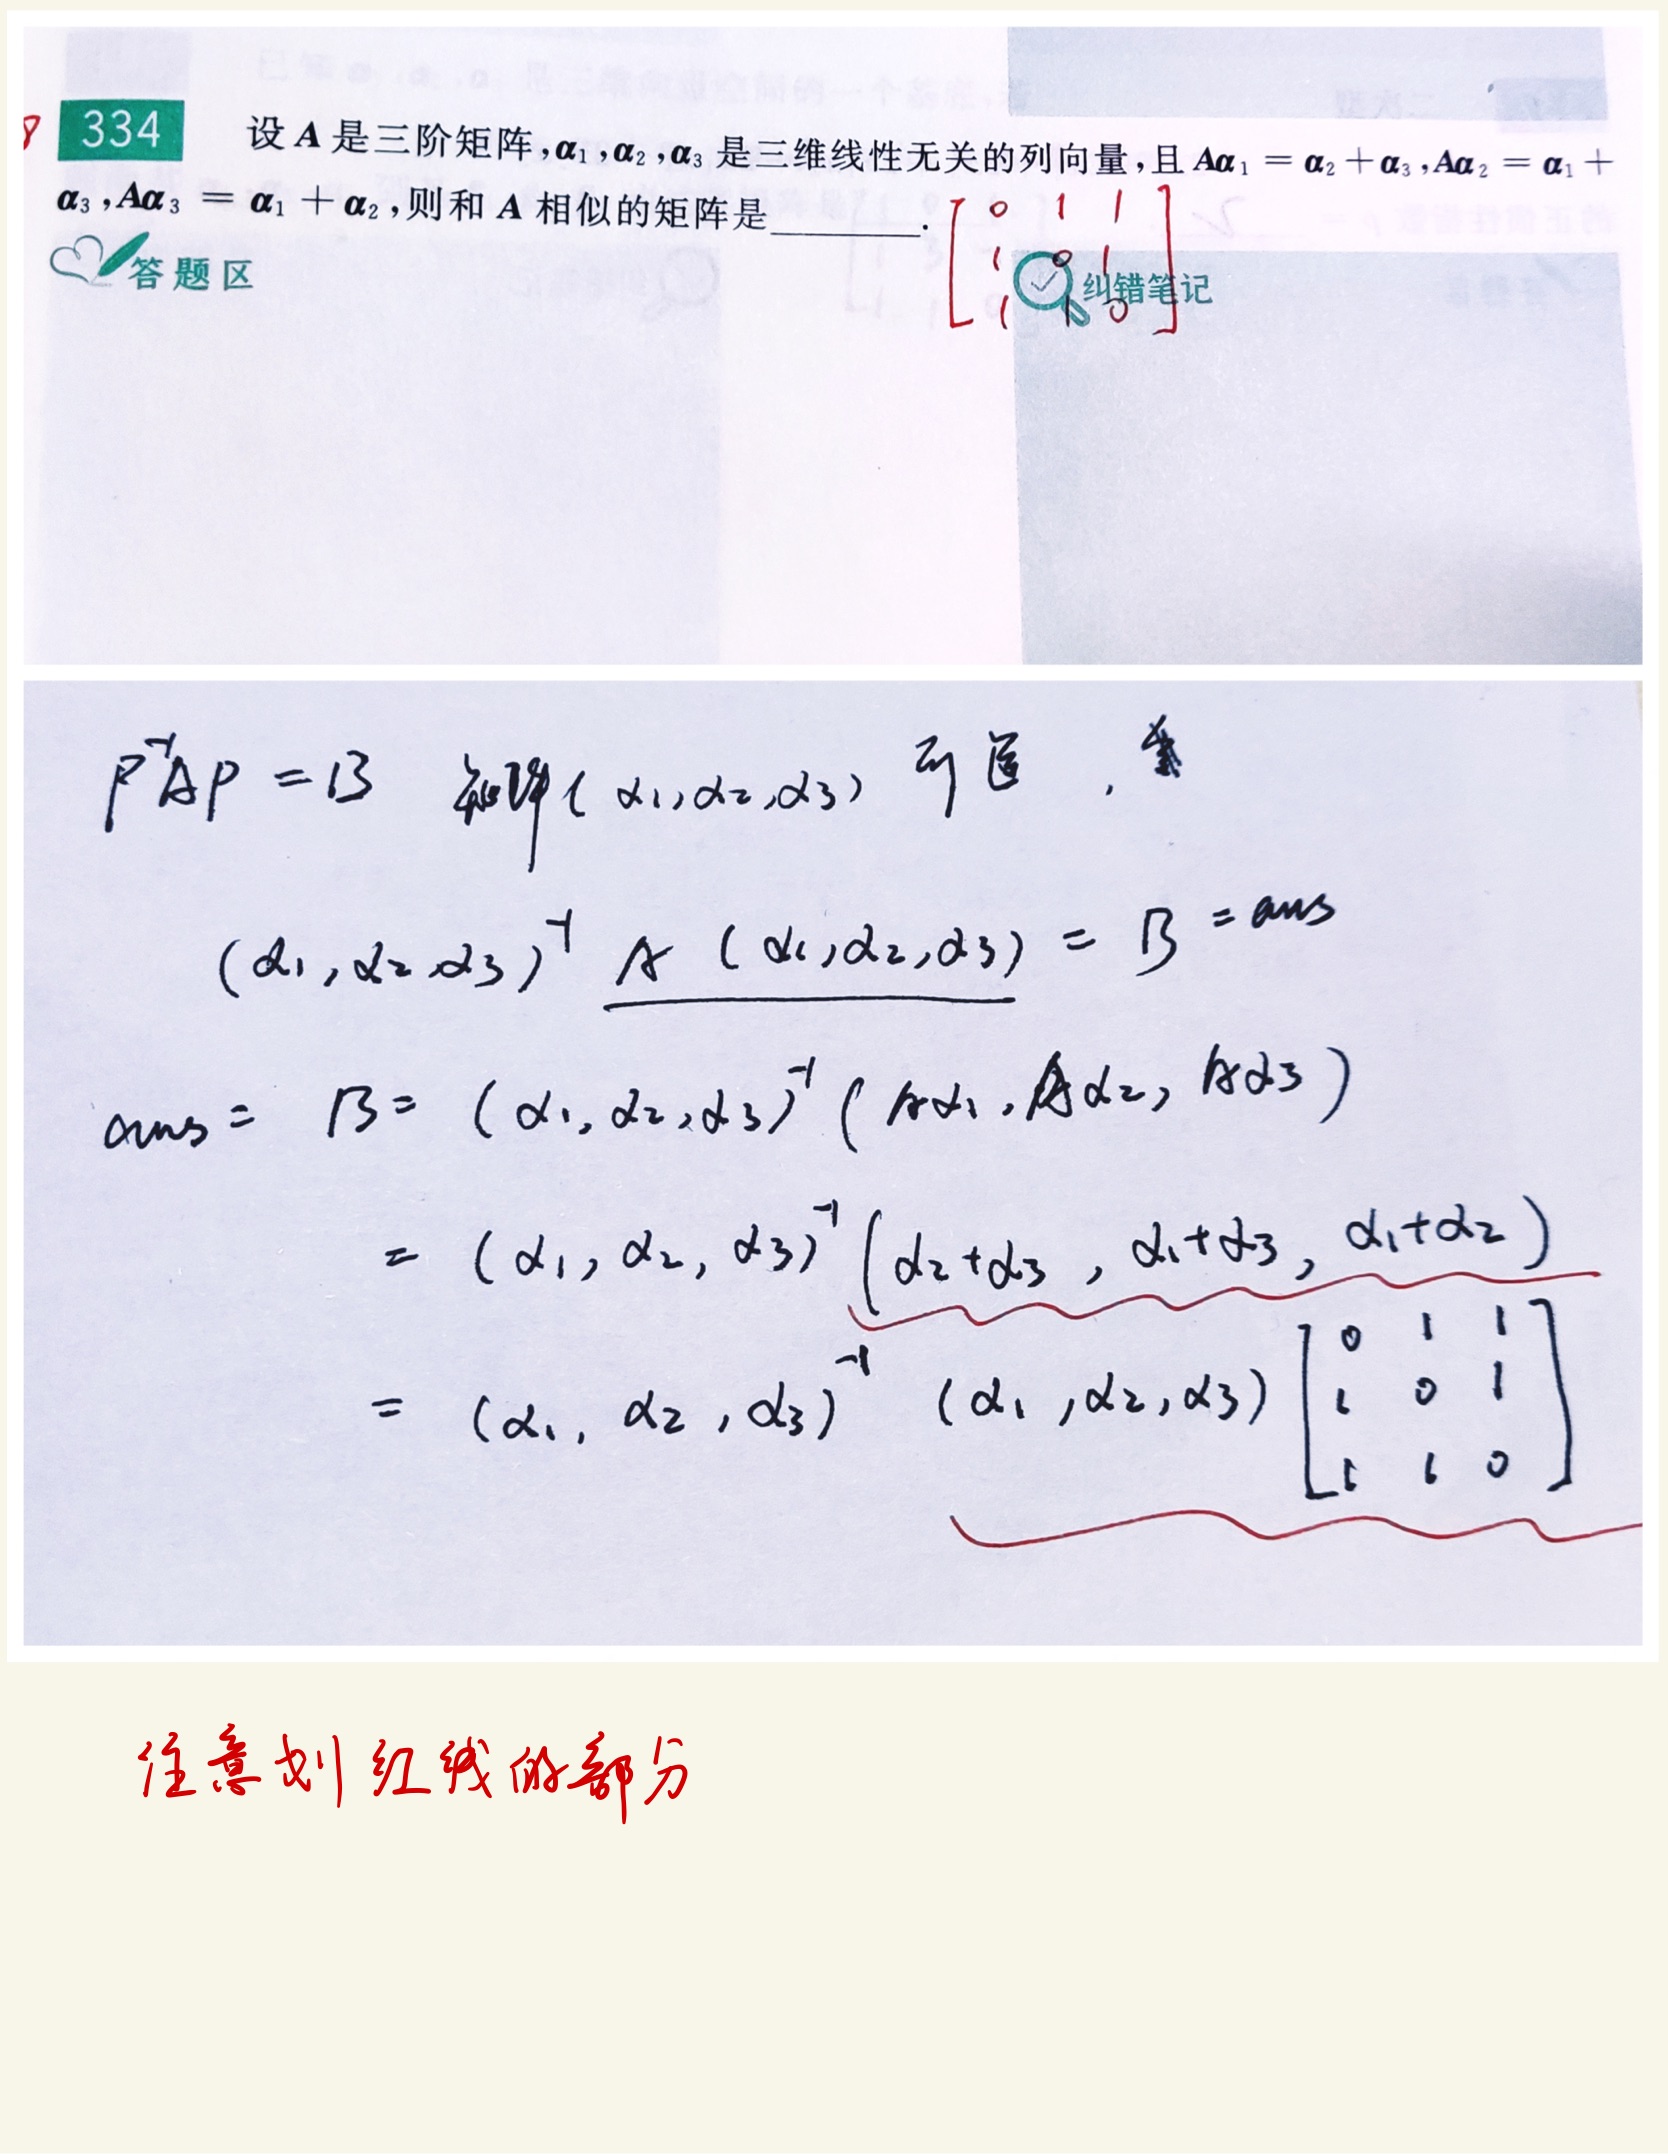 334 设 A 是三阶矩阵,α₁,α₂,α₃ 是三维线性无关的列向量,且 Aα₁ = α₂ + α₃,Aα₂ = α₁ +
α₃,Aα₃ = α₁ + α₂,则和 A 相似的矩阵是________.
0 1 1
1 0 1
1 1 0
答题区
纠错笔记
P⁻¹AP = B 矩阵(α₁,α₂,α₃) 可逆,
(α₁,α₂,α₃)⁻¹ A (α₁,α₂,α₃) = B = ans
ans = B = (α₁,α₂,α₃)⁻¹ (Aα₁,Aα₂,Aα₃)
= (α₁,α₂,α₃)⁻¹ (α₂+α₃,α₁+α₃,α₁+α₂)
= (α₁,α₂,α₃)⁻¹ (α₁,α₂,α₃)
0 1 1
1 0 1
1 1 0
注意划红线的部分